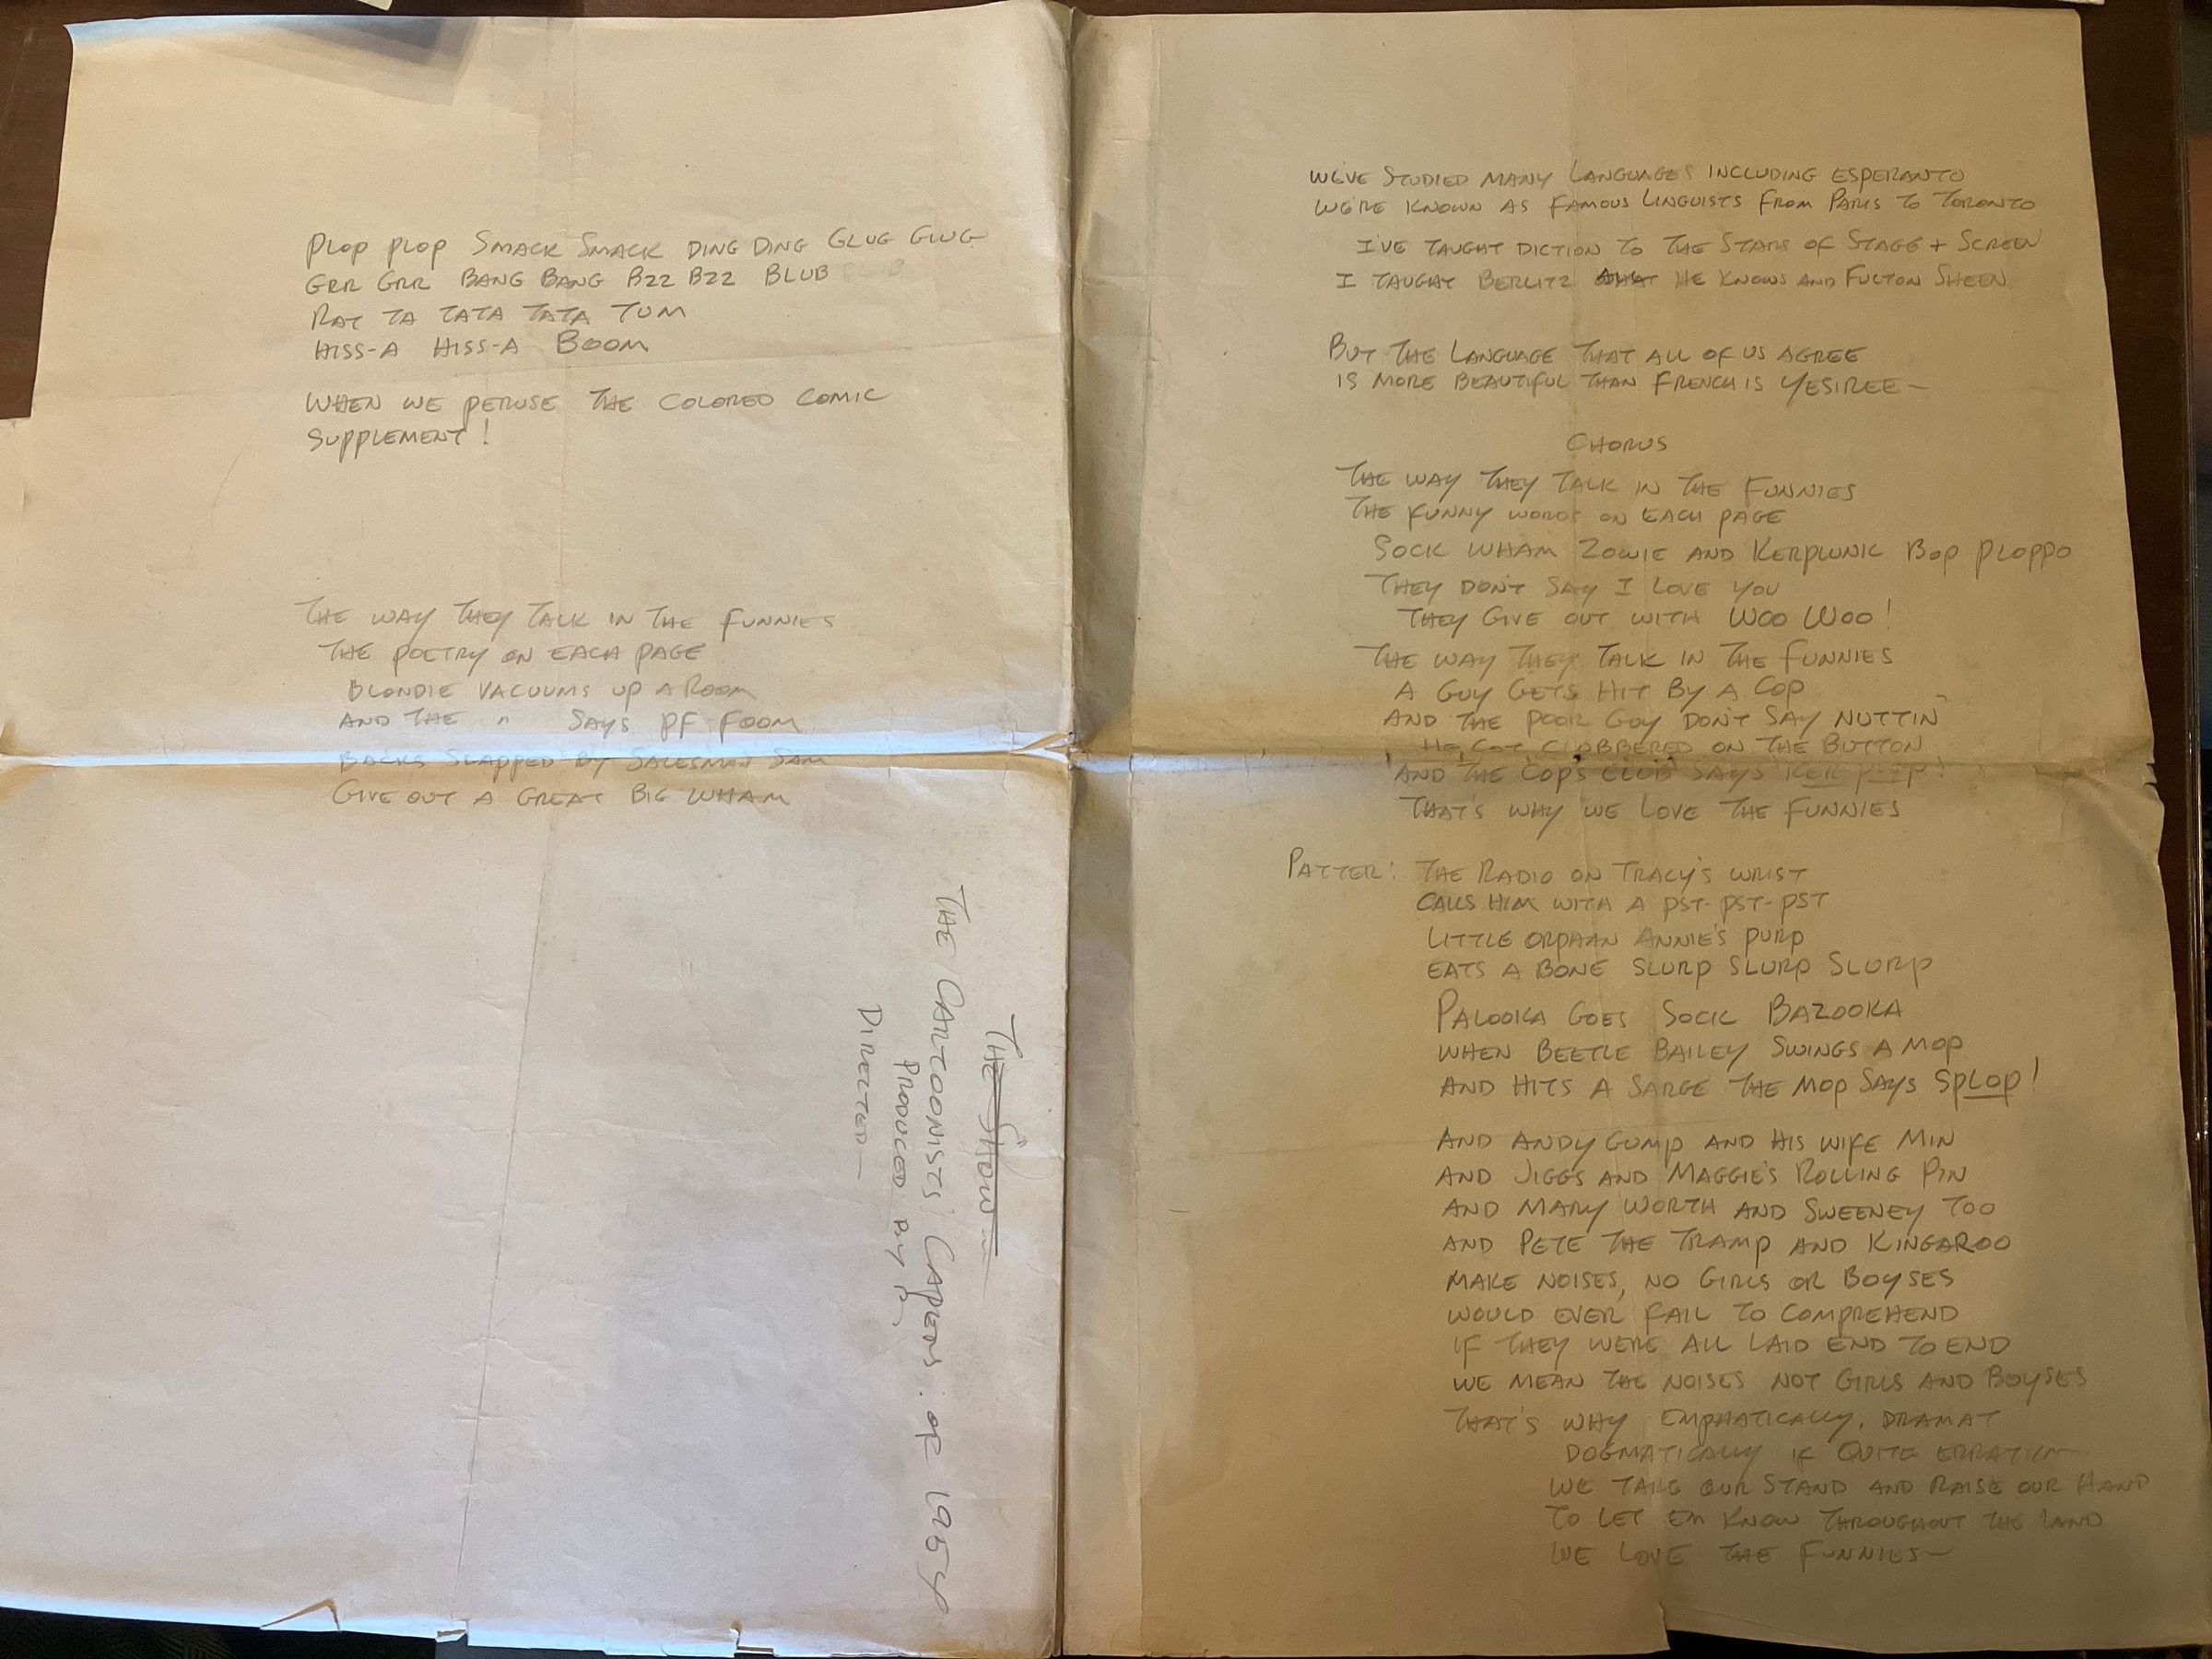 PLOP PLOP SMACK SMACK DING DING GLUG GLUG
GRR GRR BANG BANG BZZ BZZ BLUB
RAT TA TATA TATA TUM
HISS-A HISS-A BOOM
WHEN WE PERUSE THE COLORED COMIC
SUPPLEMENT!
THE WAY THEY TALK IN THE FUNNIES
THE POETRY ON EACH PAGE
BLONDIE VACUUMS UP A ROOM
AND THE " SAYS PF FOOM
BACKS SLAPPED BY SALESMAN SAM
GIVE OUT A GREAT BIG WHAM
THE SHOW
THE CARTOONISTS' CAPERS. OF 1954
PRODUCED BY
DIRECTED—
WE'VE STUDIED MANY LANGUAGES INCLUDING ESPERANTO
WE'RE KNOWN AS FAMOUS LINGUISTS FROM PARIS TO TORONTO
I'VE TAUGHT DICTION TO THE STARS OF STAGE + SCREEN
I TAUGHT BERLITZ HE KNOWS AND FULTON SHEEN
BUT THE LANGUAGE THAT ALL OF US AGREE
IS MORE BEAUTIFUL THAN FRENCH IS YESIREE—
CHORUS
THE WAY THEY TALK IN THE FUNNIES
THE FUNNY WORDS ON EACH PAGE
SOCK WHAM ZOWIE AND KERPLUNK BOP PLOPPO
THEY DON'T SAY I LOVE YOU
THEY GIVE OUT WITH WOO WOO!
THE WAY THEY TALK IN THE FUNNIES
A GUY GETS HIT BY A COP
AND THE POOR GUY DON'T SAY NUTTIN
HE GOT CLOBBERED ON THE BUTTON
AND THE COP'S CLUB SAYS KER PLOP!
THAT'S WHY WE LOVE THE FUNNIES
PATTER: THE RADIO ON TRACY'S WRIST
CALLS HIM WITH A PST-PST-PST
LITTLE ORPHAN ANNIE'S PURP
EATS A BONE SLURP SLURP SLURP
PALOOKA GOES SOCK BAZOOKA
WHEN BEETLE BAILEY SWINGS A MOP
AND HITS A SARGE THE MOP SAYS SPLOP!
AND ANDY GUMP AND HIS WIFE MIN
AND JIGGS AND MAGGIE'S ROLLING PIN
AND MARY WORTH AND SWEENEY TOO
AND PETE THE TRAMP AND KINGAROO
MAKE NOISES, NO GIRLS OR BOYSES
WOULD EVER FAIL TO COMPREHEND
IF THEY WERE ALL LAID END TO END
WE MEAN THE NOISES NOT GIRLS AND BOYSES
THAT'S WHY EMPHATICALLY, DRAMAT
DOGMATICALLY IF QUITE
WE TAKE OUR STAND AND RAISE OUR HAND
TO LET EM KNOW THROUGHOUT THE LAND
WE LOVE THE FUNNIES—